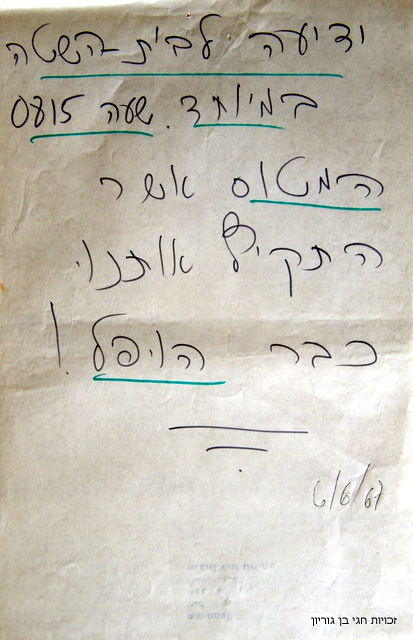 ידיעה לבית-השטה
במיוחד. שעה
המטוס אשר
התקיף אותנו
כבר הויפל!
6/6/67
זכויות חגי בן גוריון